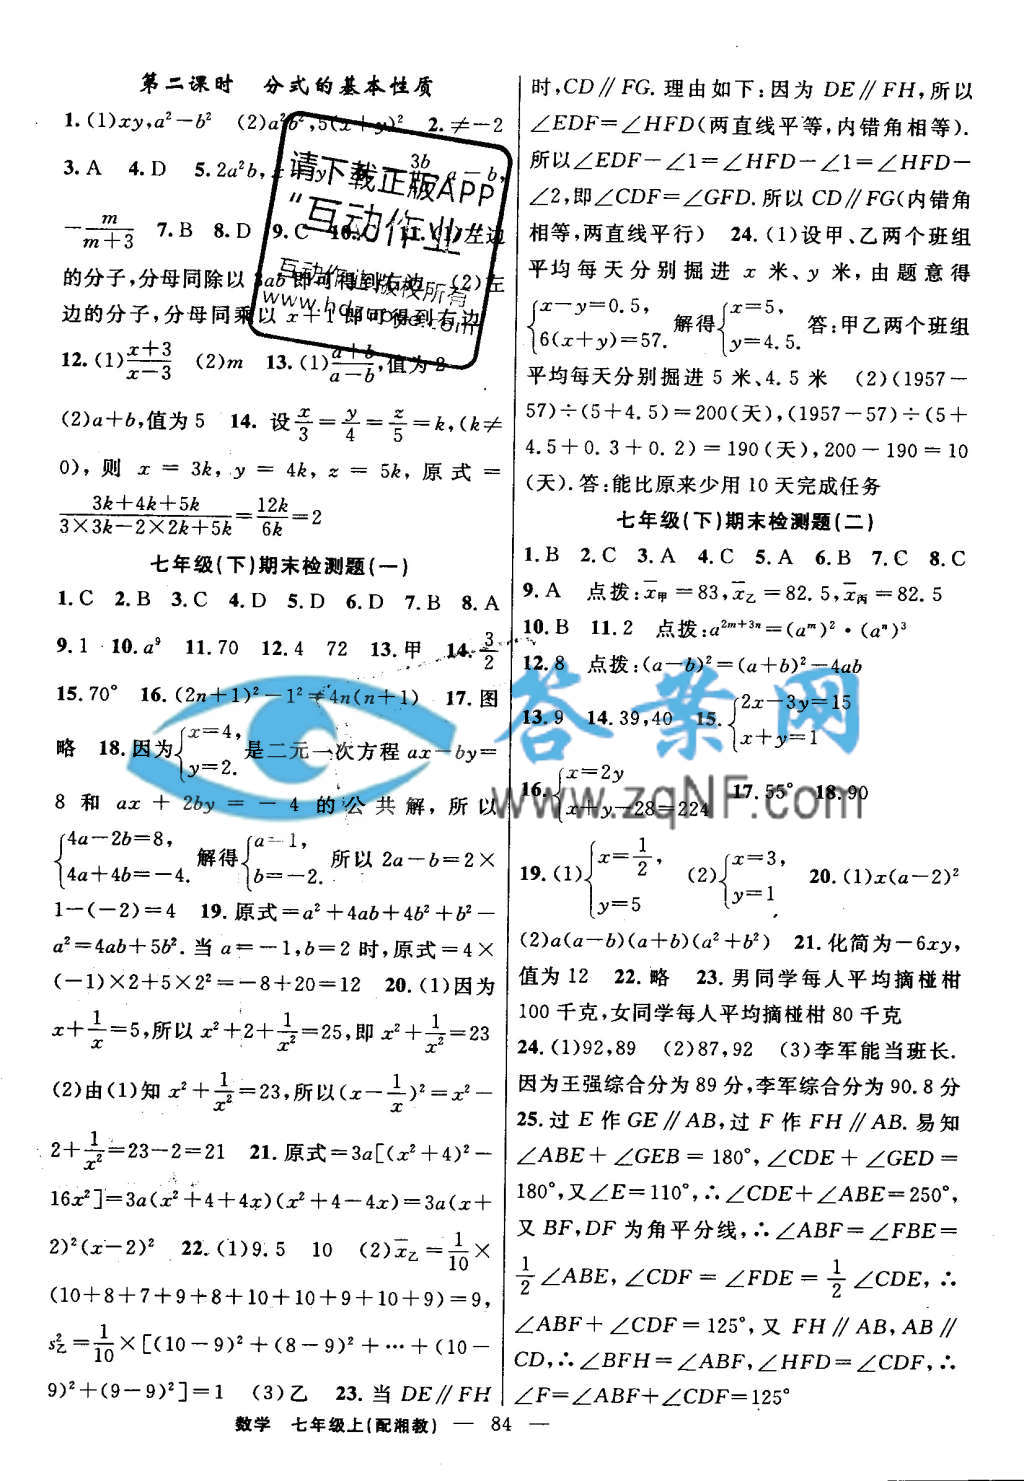 第二课时 分式的基本性质
1.(1)xy,a²-b² (2)a²b²,5(x+y)² 2.≠-2
3.A 4.D 5.2a²b, 3b a-b,
-m/(m+3) 7.B 8.D 9.C 11.(1)左边
的分子,分母同除以3ab即可得到右边 (2)左
边的分子,分母同乘以x+1即可得到右边
12.(1)(x+3)/(x-3) (2)m 13.(1)(a+b)/(a-b),值为2
(2)a+b,值为5 14.设x/3=y/4=z/5=k,(k≠
0),则 x=3k,y=4k,z=5k,原式=
(3k+4k+5k)/(3×3k-2×2k+5k)=12k/6k=2
七年级(下)期末检测题(一)
1.C 2.B 3.C 4.D 5.D 6.D 7.B 8.A
9.1 10.a⁹ 11.70 12.4 72 13.甲 14.3/2
15.70° 16.(2n+1)²-1²=4n(n+1) 17.图
略 18.因为{x=4, y=2. 是二元一次方程ax-by=
8和ax+2by=-4的公共解,所以
{4a-2b=8, 4a+4b=-4. 解得{a=1, b=-2. 所以2a-b=2×
1-(-2)=4 19.原式=a²+4ab+4b²+b²-
a²=4ab+5b².当a=-1,b=2时,原式=4×
(-1)×2+5×2²=-8+20=12 20.(1)因为
x+1/x=5,所以x²+2+1/x²=25,即x²+1/x²=23
(2)由(1)知x²+1/x²=23,所以(x-1/x)²=x²-
2+1/x²=23-2=21 21.原式=3a[(x²+4)²-
16x²]=3a(x²+4+4x)(x²+4-4x)=3a(x+
2)²(x-2)² 22.(1)9.5 10 (2)x̄乙=1/10×
(10+8+7+9+8+10+10+9+10+9)=9,
s²乙=1/10×[(10-9)²+(8-9)²+…+(10-
9)²+(9-9)²]=1 (3)乙 23.当DE∥FH
时,CD∥FG.理由如下:因为DE∥FH,所以
∠EDF=∠HFD(两直线平等,内错角相等).
所以∠EDF-∠1=∠HFD-∠1=∠HFD-
∠2,即∠CDF=∠GFD.所以CD∥FG(内错角
相等,两直线平行) 24.(1)设甲、乙两个班组
平均每天分别掘进x米、y米,由题意得
{x-y=0.5, 6(x+y)=57. 解得{x=5, y=4.5. 答:甲乙两个班组
平均每天分别掘进5米、4.5米 (2)(1957-
57)÷(5+4.5)=200(天),(1957-57)÷(5+
4.5+0.3+0.2)=190(天),200-190=10
(天).答:能比原来少用10天完成任务
七年级(下)期末检测题(二)
1.B 2.C 3.A 4.C 5.A 6.B 7.C 8.C
9.A 点拨:x̄甲=83,x̄乙=82.5,x̄丙=82.5
10.B 11.2 点拨:a²ᵐ⁺³ⁿ=(aᵐ)²·(aⁿ)³
12.8 点拨:(a-b)²=(a+b)²-4ab
13.9 14.39,40 15.{2x-3y=15 x+y=1
16.{x=2y x+y-28=224 17.55° 18.90
19.(1){x=1/2, y=5 (2){x=3, y=1 20.(1)x(a-2)²
(2)a(a-b)(a+b)(a²+b²) 21.化简为-6xy,
值为12 22.略 23.男同学每人平均摘椪柑
100千克,女同学每人平均摘椪柑80千克
24.(1)92,89 (2)87,92 (3)李军能当班长.
因为王强综合分为89分,李军综合分为90.8分
25.过E作GE∥AB,过F作FH∥AB.易知
∠ABE+∠GEB=180°,∠CDE+∠GED=
180°,又∠E=110°,∴∠CDE+∠ABE=250°,
又BF,DF为角平分线,∴∠ABF=∠FBE=
1/2∠ABE,∠CDF=∠FDE=1/2∠CDE,∴
∠ABF+∠CDF=125°,又FH∥AB,AB∥
CD,∴∠BFH=∠ABF,∠HFD=∠CDF,∴
∠F=∠ABF+∠CDF=125°
数学 七年级上(配湘教) — 84 —
请下载正版APP
"互动作业"
互动作业版权所有
答案网
www.zqNF.com